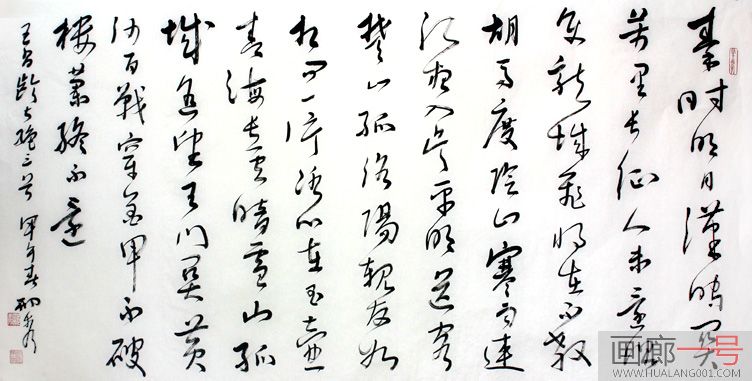 秦时明月漢时关
万里长征人未還但
使龙城飛将在不教
胡马度陰山寒雨连
江夜入吴平明送客
楚山孤洛陽親友如
相问一片冰心在玉壶
青海长云暗雪山孤
城遥望玉门关黄
沙百戰穿金甲不破
楼蘭终不還
王昌龄七绝三首 甲午春
画廊一号
WWW.HUALANG001.COM